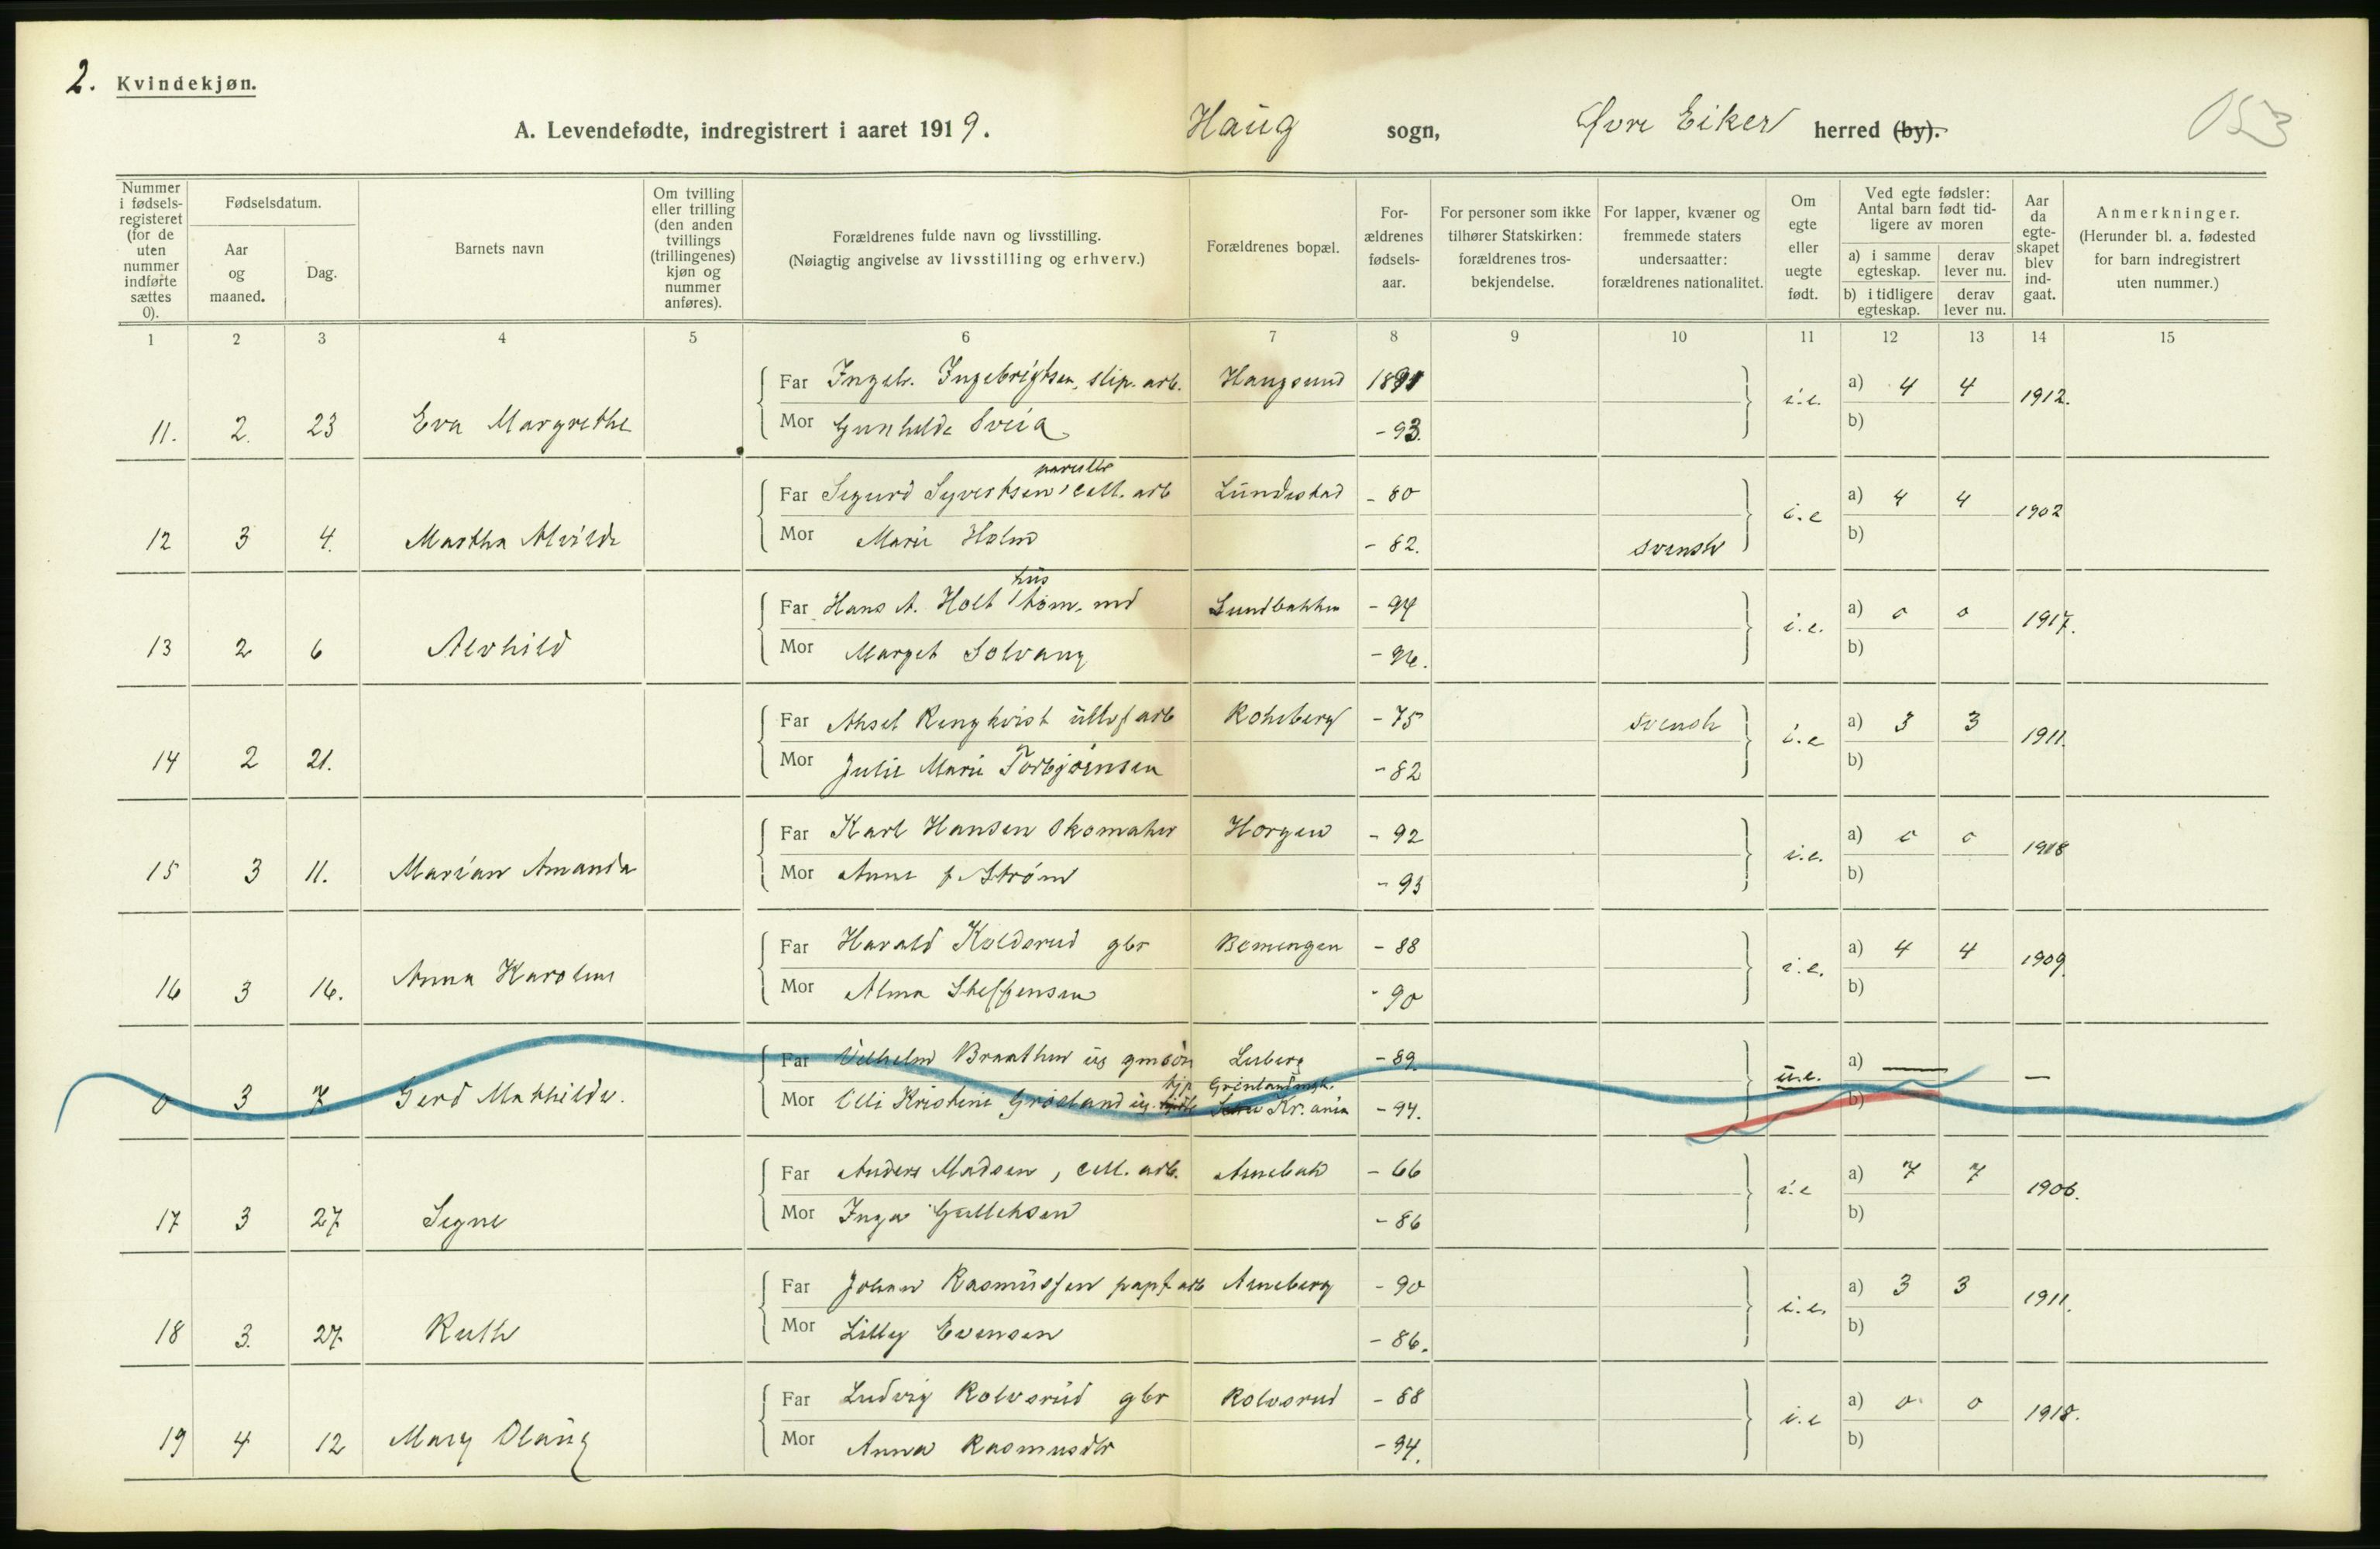 2. Kvindekjøn.
A. Levendefødte, indregistrert i aaret 1919. Haug sogn, Øvre Eiker herred (by).
053
Nummer i fødselsregisteret (for de uten nummer indførte sættes 0).
Fødselsdatum.
Aar og maaned.
Dag.
Barnets navn
Om tvilling eller trilling (den anden tvillings (trillingenes) kjøn og nummer anføres).
Forældrenes fulde navn og livsstilling.
(Nøiagtig angivelse av livsstilling og erhverv.)
Forældrenes bopæl.
Forældrenes fødselsaar.
For personer som ikke tilhører Statskirken: forældrenes trosbekjendelse.
For lapper, kvæner og fremmede staters undersaatter: forældrenes nationalitet.
Om egte eller uegte født.
Ved egte fødsler: Antal barn født tidligere av moren
a) i samme egteskap. derav lever nu.
b) i tidligere egteskap. derav lever nu.
Aar da egteskapet blev indgaat.
Anmerkninger.
(Herunder bl. a. fødested for barn indregistrert uten nummer.)
1 2 3 4 5 6 7 8 9 10 11 12 13 14 15
Far Ingebr. Ingebrigtsen, slip. arb. Haugsund 1891 i.e. a) 4 4 1912.
11. 2. 23 Eva Margrethe Mor Gunhilda Sveia - 93. b)
Far Sigurd Syvertsen, cell. arb Lundestad - 80 i.e a) 4 4 1902
12 3 4. Martha Alvilde Mor Marie Holm - 82. svensk b)
hus
Far Hans A. Holt tøm. md Lundbakken - 94 i.e. a) 0 0 1917.
13 2 6 Alvhild Mor Marget Solvang - 96. b)
Far Aksel Rengkvist ulvf arb Kohsberg - 75 svensk i.e a) 3 3 1911.
14 2 21. Mor Julie Marie Torbjørnsen - 82 b)
Far Karl Hansen skomaker Horgen - 92 i.e. a) 0 0 1918
15 3 11. Marian Amanda Mor Anne f. Strøm - 93 b)
Far Harald Koldsrud gbr Bermingen - 88 i.e. a) 4 4 1909.
16 3 16. Anna Karoline Mor Alma Steffensen - 90 b)
Far Vilhelm Braathen ug gmsøn Luberg - 89 u.e. a) — —
0 3 7 Gerd Mathilde. Mor Elli Kristine Grøsland ug. Kr.ania - 94. b)
Far Anders Madsen, cell. arb. Arnebak - 66 i.e a) 7 7 1906.
17 3 27 Signe Mor Inga Gulliksen - 86 b)
Far Johan Rasmussen papf arb Arneberg - 90 i.e. a) 3 3 1911.
18 3. 27 Ruth Mor Lilly Evensen - 86. b)
Far Ludvig Kolvsrud gbr Kolvsrud - 88 i.e a) 0 0 1918.
19 4 12 Mary Olaug Mor Anna Rasmusdtr - 94. b)